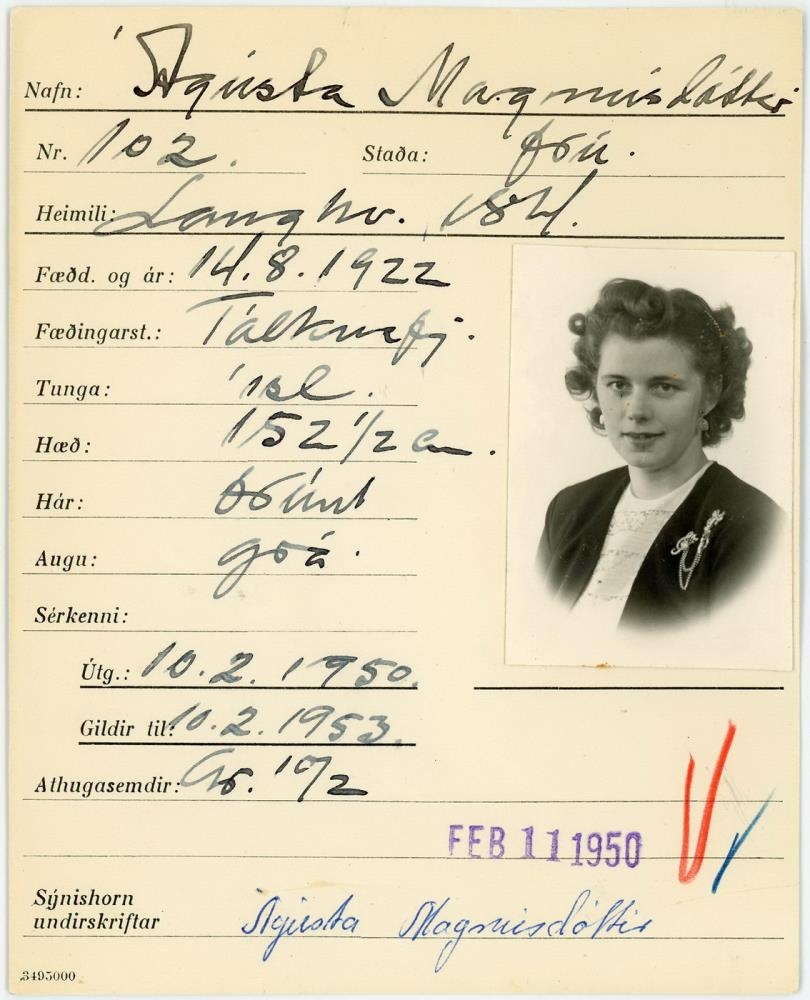 Nafn: Ágústa Magnúsdóttir
Nr. 102. Staða: frú.
Heimili: Langhv. 184.
Fædd. og ár: 14.8.1922
Fæðingarst.: Tálknafj.
Tunga: ísl.
Hæð: 152 1/2 cm.
Hár: brúnt
Augu: grá.
Sérkenni:
Útg.: 10.2.1950.
Gildir til: 10.2.1953.
Athugasemdir: 10/2
FEB 11 1950
Sýnishorn
undirskriftar Ágústa Magnúsdóttir
3495000